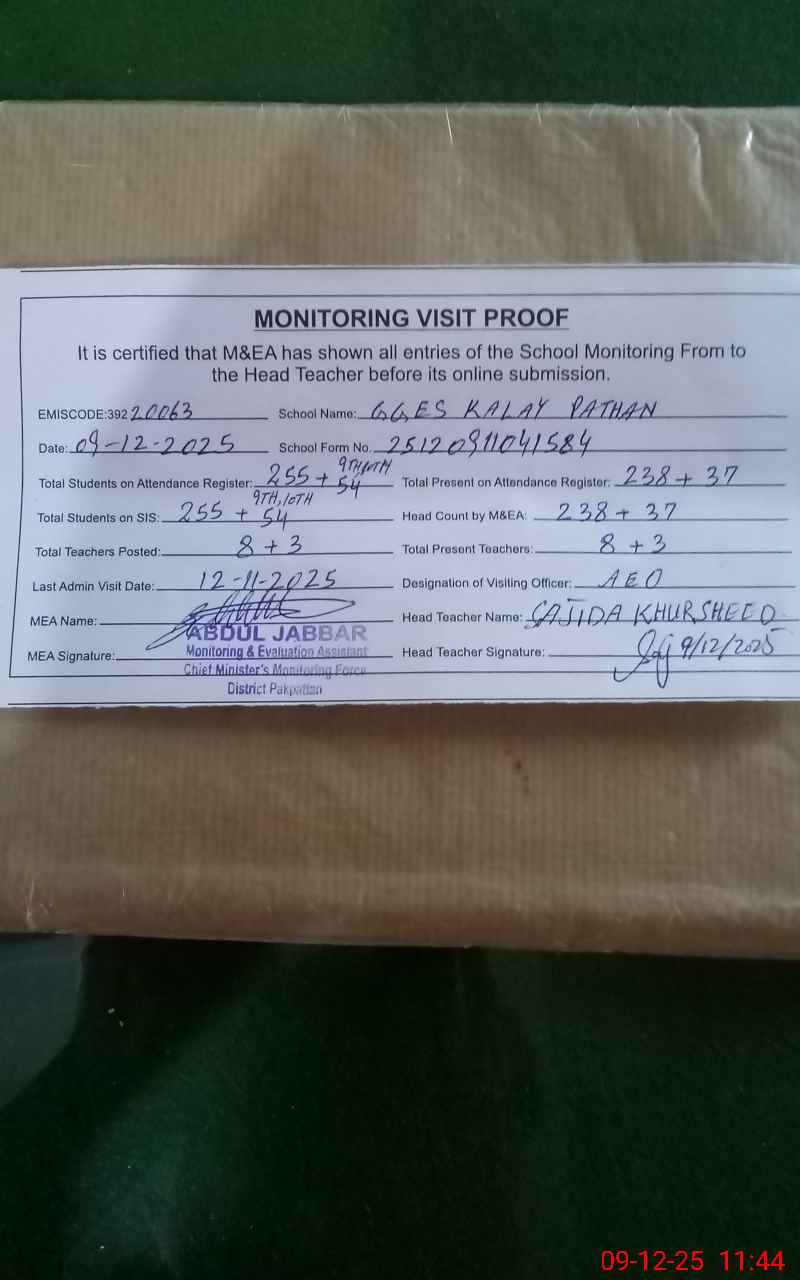 MONITORING VISIT PROOF
It is certified that M&EA has shown all entries of the School Monitoring From to
the Head Teacher before its online submission.
EMISCODE:392 20063 School Name: GGES KALAY PATHAN
Date: 09-12-2025 School Form No. 25120911041584
9TH,10TH
Total Students on Attendance Register: 255 + 54 Total Present on Attendance Register: 238 + 37
9TH,10TH
Total Students on SIS: 255 + 54 Head Count by M&EA: 238 + 37
Total Teachers Posted: 8 + 3 Total Present Teachers: 8 + 3
Last Admin Visit Date: 12-11-2025 Designation of Visiting Officer: AEO
MEA Name: Head Teacher Name: SAJIDA KHURSHEED
ABDUL JABBAR
MEA Signature: Monitoring & Evaluation Assistant Head Teacher Signature: 9/12/2025
Chief Minister's Monitoring Force
District Pakpattan
09-12-25 11:44